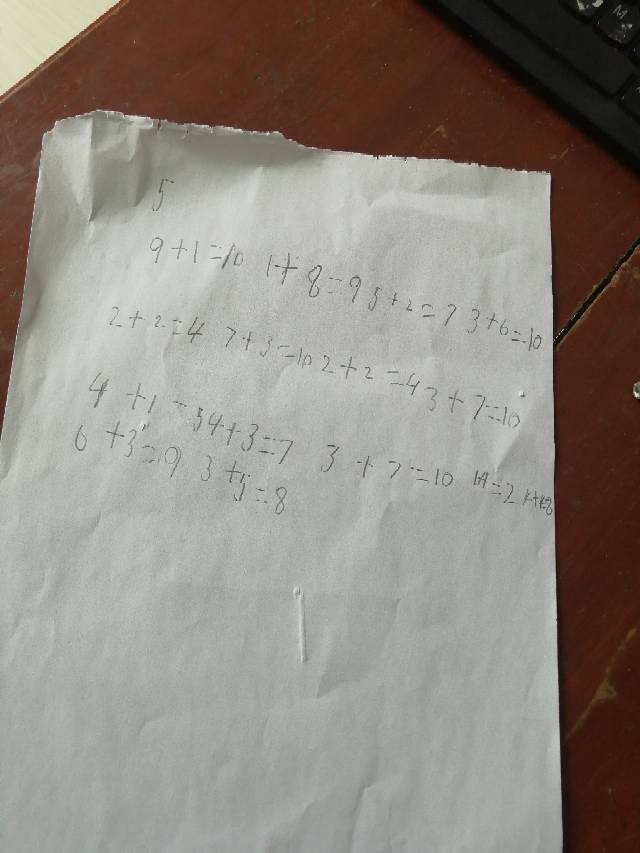 5
9+1=10 1+8=9 5+2=7 3+6=10
2+2=4 7+3=10 2+2=4 3+7=10
4+1=5 4+3=7 3+7=10 1+1=2
6+3=9 3+5=8